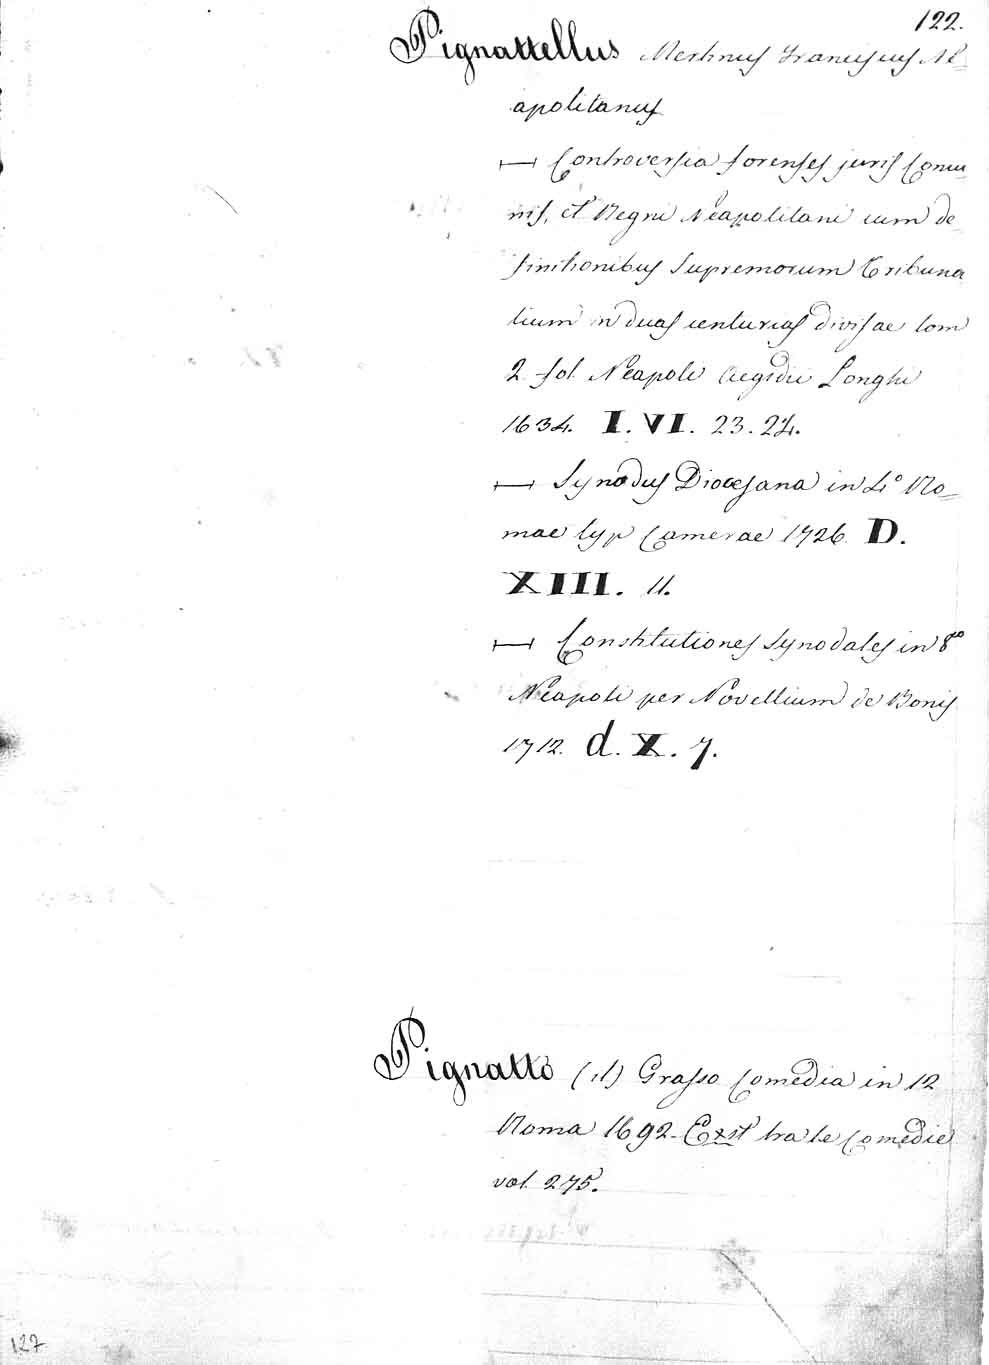 122.
Pignattellus Merlinus Franciscus Ne=
apolitanus
— Controversia forenses juris Comu=
nis, et Regni Neapolitani cum de=
finitionibus Supremorum Tribuna
lium in duas centurias divisae tom
2. fol. Neapoli Aegidii Longhi
1634. I. VI. 23. 24.
— Synodus Diocesana in 4º Ro=
mae typ Camerae 1726. D.
XIII. 11.
— Constitutiones Synodales in 8º
Neapoli per Novellium de Bonis
1712. d. X. 7.
Pignatto (il) Grasso Comedia in 12
Roma 1692. Exst tra le Comedie
vol. 275.
127